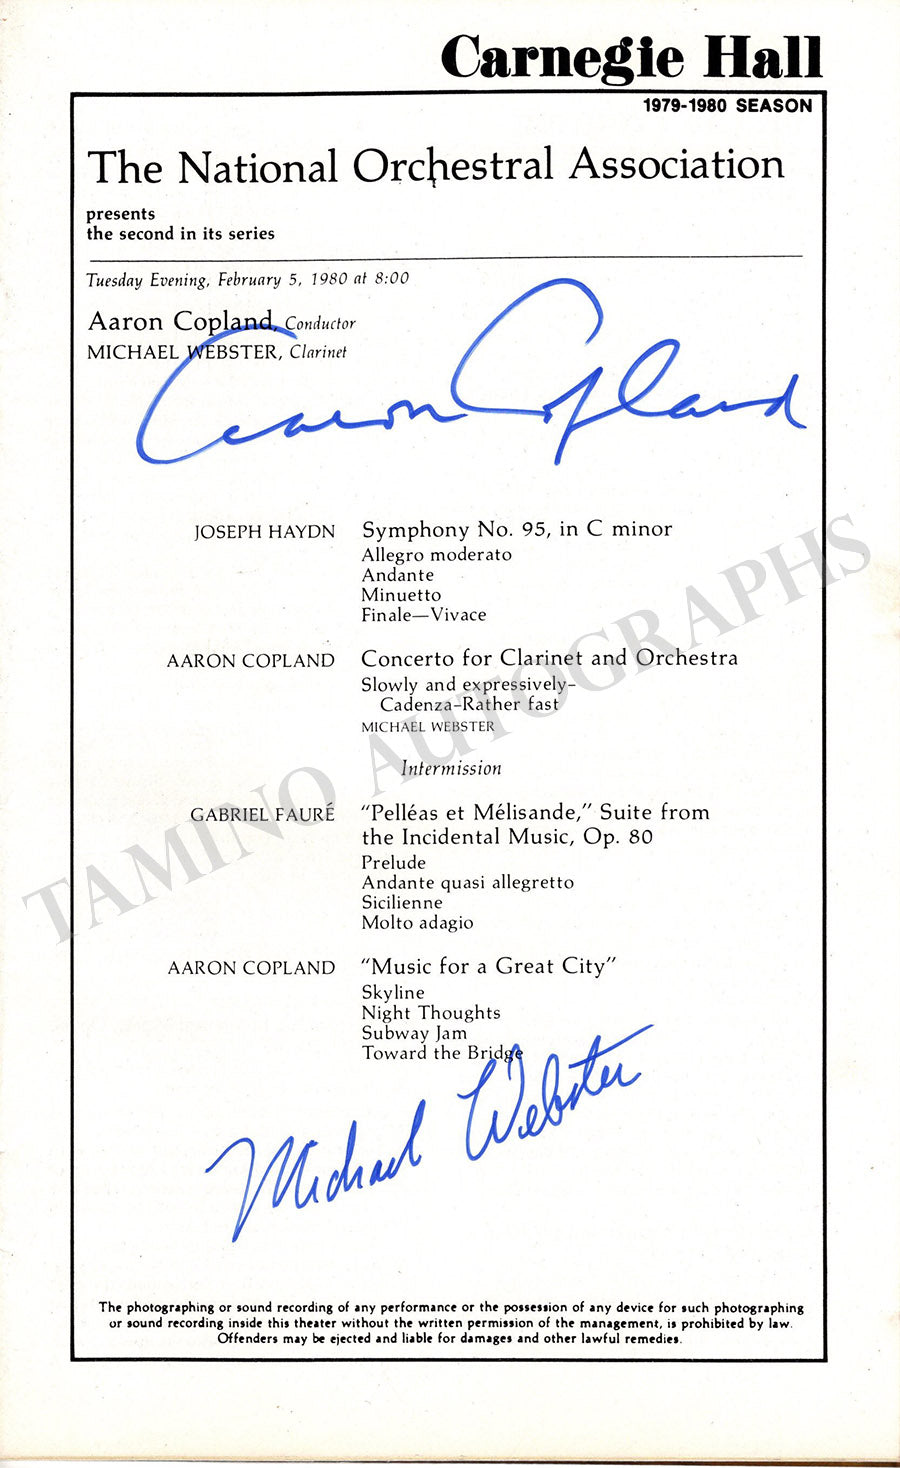 Carnegie Hall
1979-1980 SEASON
The National Orchestral Association
presents
the second in its series
Tuesday Evening, February 5, 1980 at 8:00
Aaron Copland, Conductor
MICHAEL WEBSTER, Clarinet
Aaron Copland
JOSEPH HAYDN Symphony No. 95, in C minor
Allegro moderato
Andante
Minuetto
Finale—Vivace
AARON COPLAND Concerto for Clarinet and Orchestra
Slowly and expressively-
Cadenza-Rather fast
MICHAEL WEBSTER
Intermission
GABRIEL FAURÉ "Pelléas et Mélisande," Suite from
the Incidental Music, Op. 80
Prelude
Andante quasi allegretto
Sicilienne
Molto adagio
AARON COPLAND "Music for a Great City"
Skyline
Night Thoughts
Subway Jam
Toward the Bridge
Michael Webster
The photographing or sound recording of any performance or the possession of any device for such photographing
or sound recording inside this theater without the written permission of the management, is prohibited by law.
Offenders may be ejected and liable for damages and other lawful remedies.
TAMINO AUTOGRAPHS